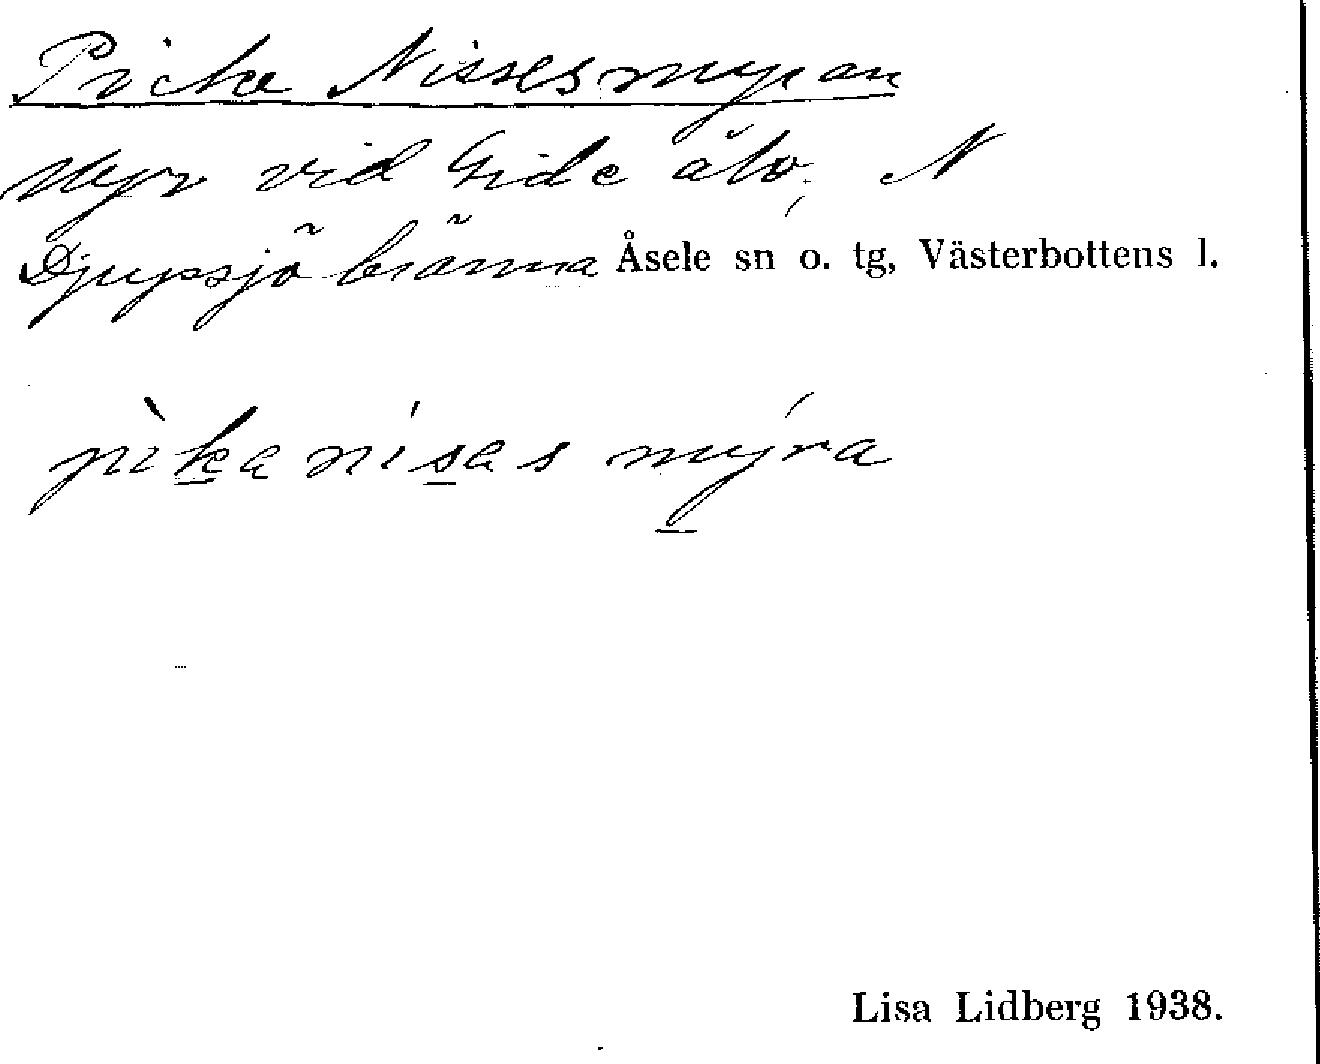 Picka Nissesmyran
Myr vid Gide älv, N
Djupsjöbränna Åsele sn o. tg, Västerbottens l.
pìka nisas mýra
Lisa Lidberg 1938.